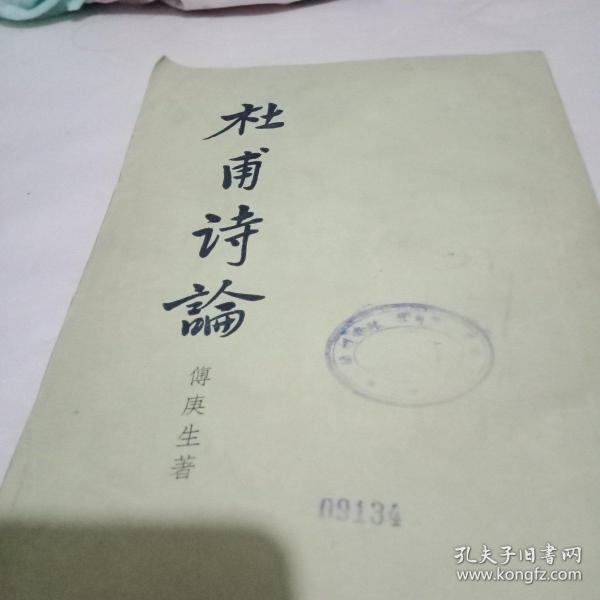 杜甫诗論
傅庚生著
09134
孔夫子旧书网
www.kongfz.com